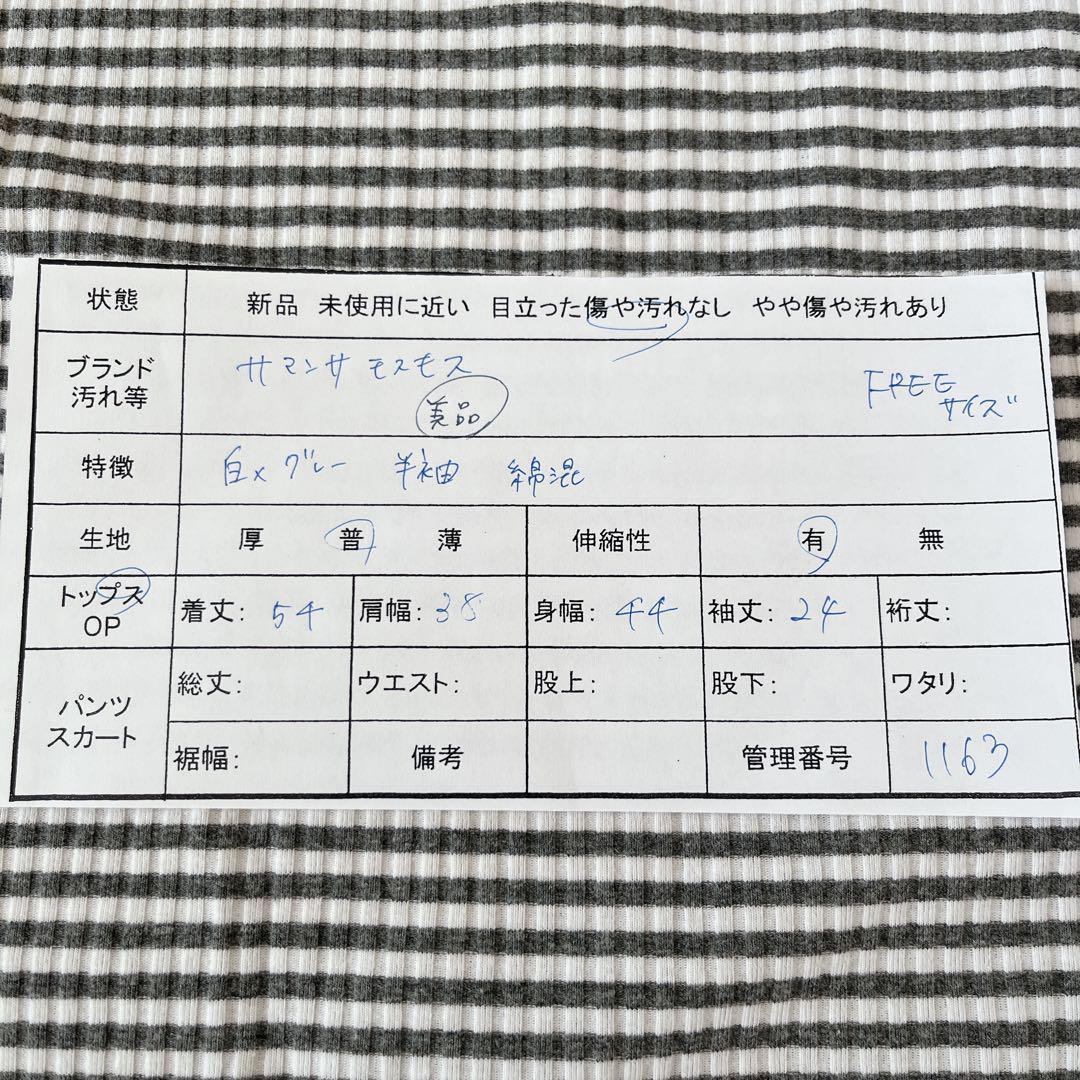 状態 新品 未使用に近い 目立った傷や汚れなし やや傷や汚れあり
ブランド
汚れ等
サマンサ モスモス
美品
FREE
サイズ
特徴 白×グレー 半袖 綿混
生地 厚 普 薄 伸縮性 有 無
トップス
OP
着丈: 54 肩幅: 38 身幅: 44 袖丈: 24 裄丈:
パンツ
スカート
総丈: ウエスト: 股上: 股下: ワタリ:
裾幅: 備考 管理番号 1163